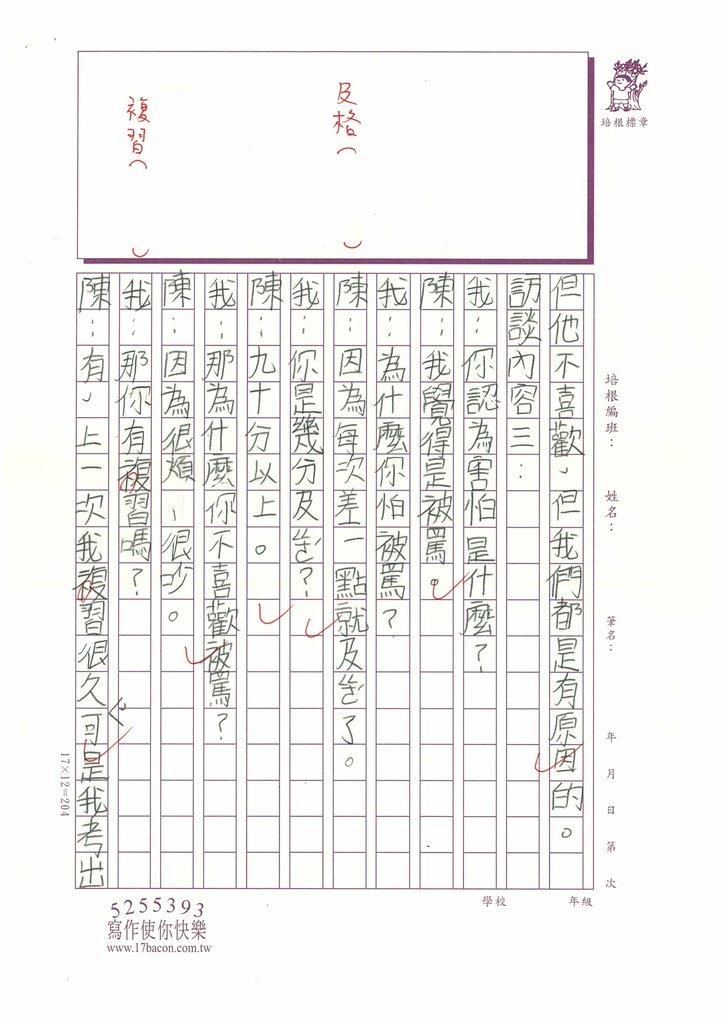 培根標章
及格（　）
複習（　）
培根編班：　姓名：　筆名：　年　月　日　第　次
但他不喜歡、但我們都是有原因的。
訪談內容三：
我：你認為害怕是什麼？
陳：我覺得是被罵。
我：為什麼你怕被罵？
陳：因為每次差一點就及ㄍㄜˊ了。
我：你是幾分及ㄍㄜˊ？
陳：九十分以上。
我：那為什麼你不喜歡被罵？
陳：因為很煩、很吵。
我：那你有複習嗎？
陳：有，上一次我複習很久，可是我考出
17×12=204
學校　年級
5255393
寫作使你快樂
www.17bacon.com.tw